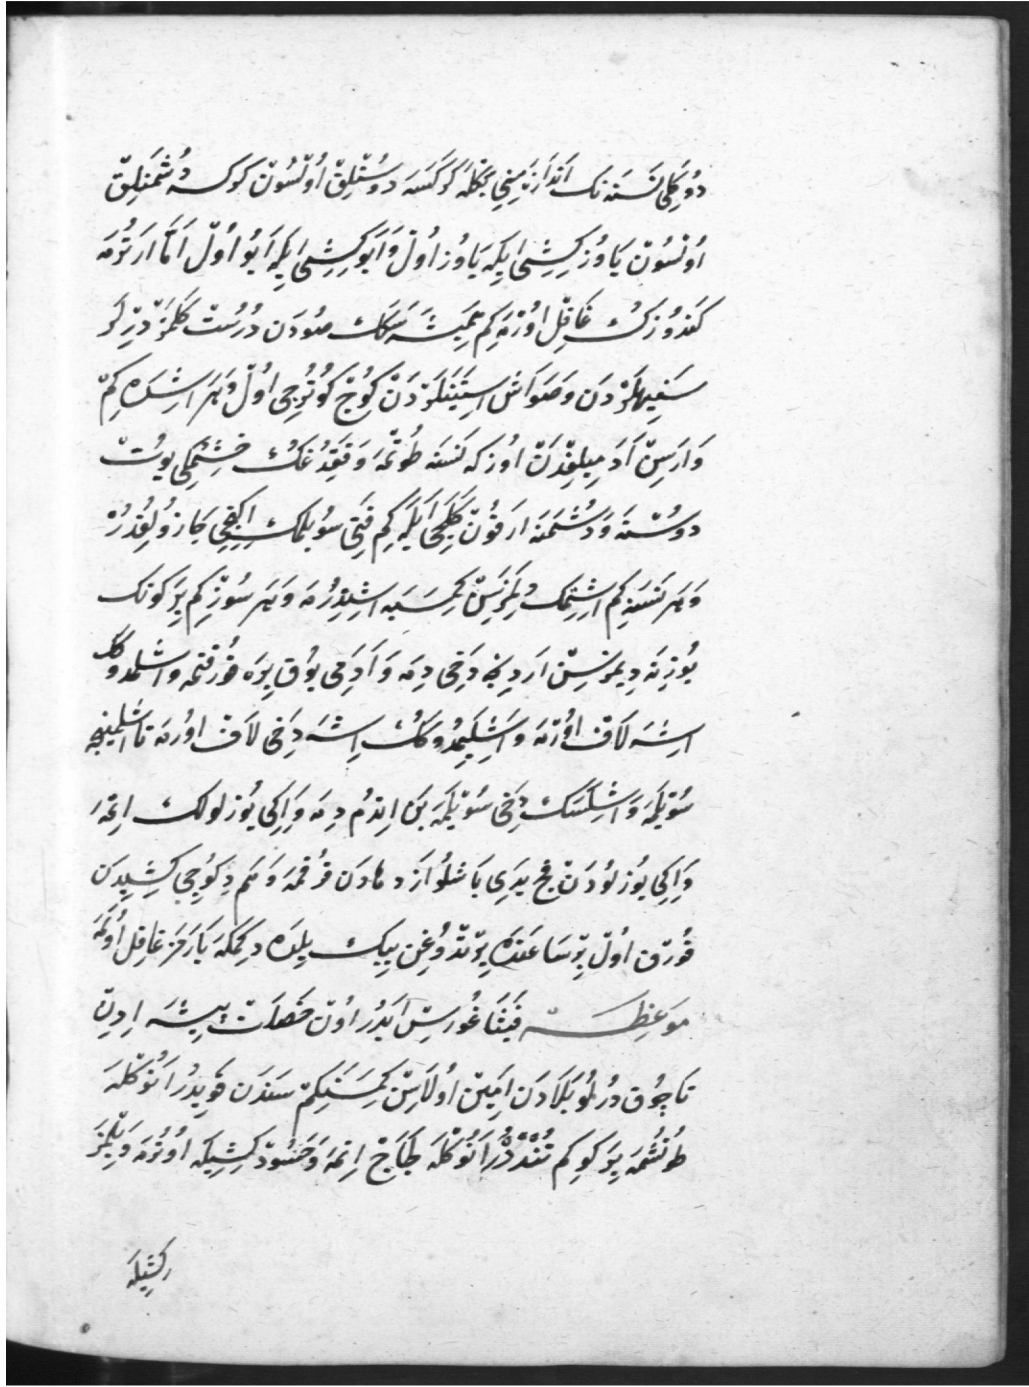 دُوكَلِي نَسَنه نك اَندَازَسِنِي بَكلَه كَركَسَه دوُستلِق اُولسُون كركسه دُشمَنلِق
اُولسُون يَاوُز كِشِي ايلَه يَاوُز اُول وَ اَيُو كِشِي ايلَه اَيُو اُول اَمَّا ارتُرمه
كَندُوزكُ غَافِل اوُرمَه كِم هَمِيشَه سَكَا صُودَن دُرُست كَلمَز دِيرلَر
سَفِيهلَردَن وَ صَوَاش اِستَينلَردَن كُوج كوتُرُجِي اُول وَ هَر اِشدَه كِم
وَارسِن آدَمِيلِقدَن اوزكه نَسنه طُوتمَه وَ قَقِدُغكُ خِشمِكِي يُوت
دوستَه وَ دُشمَنه ارقُون كَلَجِي ايلَه كِم قَتِي سُويلمك اِيكِنجِي جَازُولِقدُر
وَ هَر نَسَنه كم اشتمك دِلَمزسِن كِمسَيه اشِتدِرمَه وَ هَر سُوزِ كِم بِر كونك
يُوزِنه دِيمزسِن اَردِنجه دَخِي دِمَه وَ آدَمِي يُوق يِره قُورقتمه و اشلمدوكك
اِشَه لَاف اوُرمَه وَ اِشلَيمدُوكك اِشَه دَخِي لَاف اورمه تا اشلمينجه
سُويلَمه وَ اِشلَسَك دَخِي سُويلَمَه بَن اِتدُم دِمَه وَ اِيكِي يُوزلولك اِتمَه
وَ اِيكِي يُوزلُودَن قَچ يَدِي بَاشلُو اَژدهادن قُرقمَه وَ هَم دِكوُجِي كِشِيدَن
قُورق اُول بِر سَاعَتدَه يِرتدُوغِن بِيك يِلدَه دِكمكَه يَارَمَز غافِل اُولمَه
موَعِظَه فِيثَاغُورِس اَيدُر اُون خَصلَت پِيشَه اِدِن
تا چُوق دُرلُو بَلَادَن اَمِين اُولَاسِن كِمسَنِكم سَندَن قَوِيدُر انُوكلَه
طُرُشمَه بِر كو كم تُندُر اَنُوكلَه لَجَاج اِتمَه وَ حَسُود كِشِيلَه اوتُرمَه وَ بِلمَز
كشيله